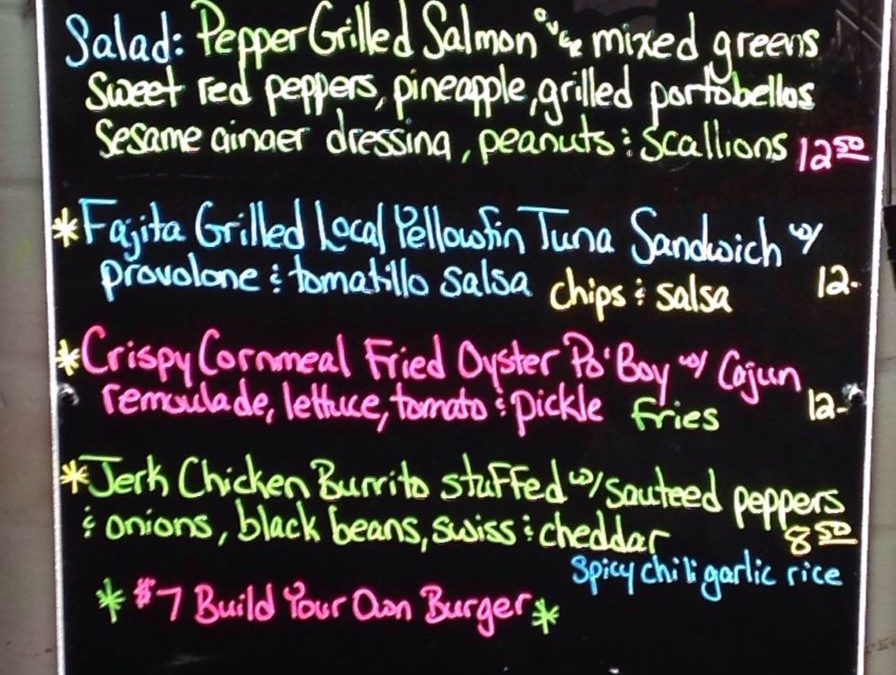 Salad: Pepper Grilled Salmon over mixed greens
Sweet red peppers, pineapple, grilled portobellos
Sesame ginger dressing, peanuts & scallions 12.50
*Fajita Grilled Local Yellowfin Tuna Sandwich w/
provolone & tomatillo salsa chips & salsa 12-
*Crispy Cornmeal Fried Oyster Po'Boy w/ Cajun
remoulade, lettuce, tomato & pickle fries 12-
*Jerk Chicken Burrito stuffed w/ sauteed peppers
& onions, black beans, swiss & cheddar 8 50
Spicy chili garlic rice
* $7 Build Your Own Burger *